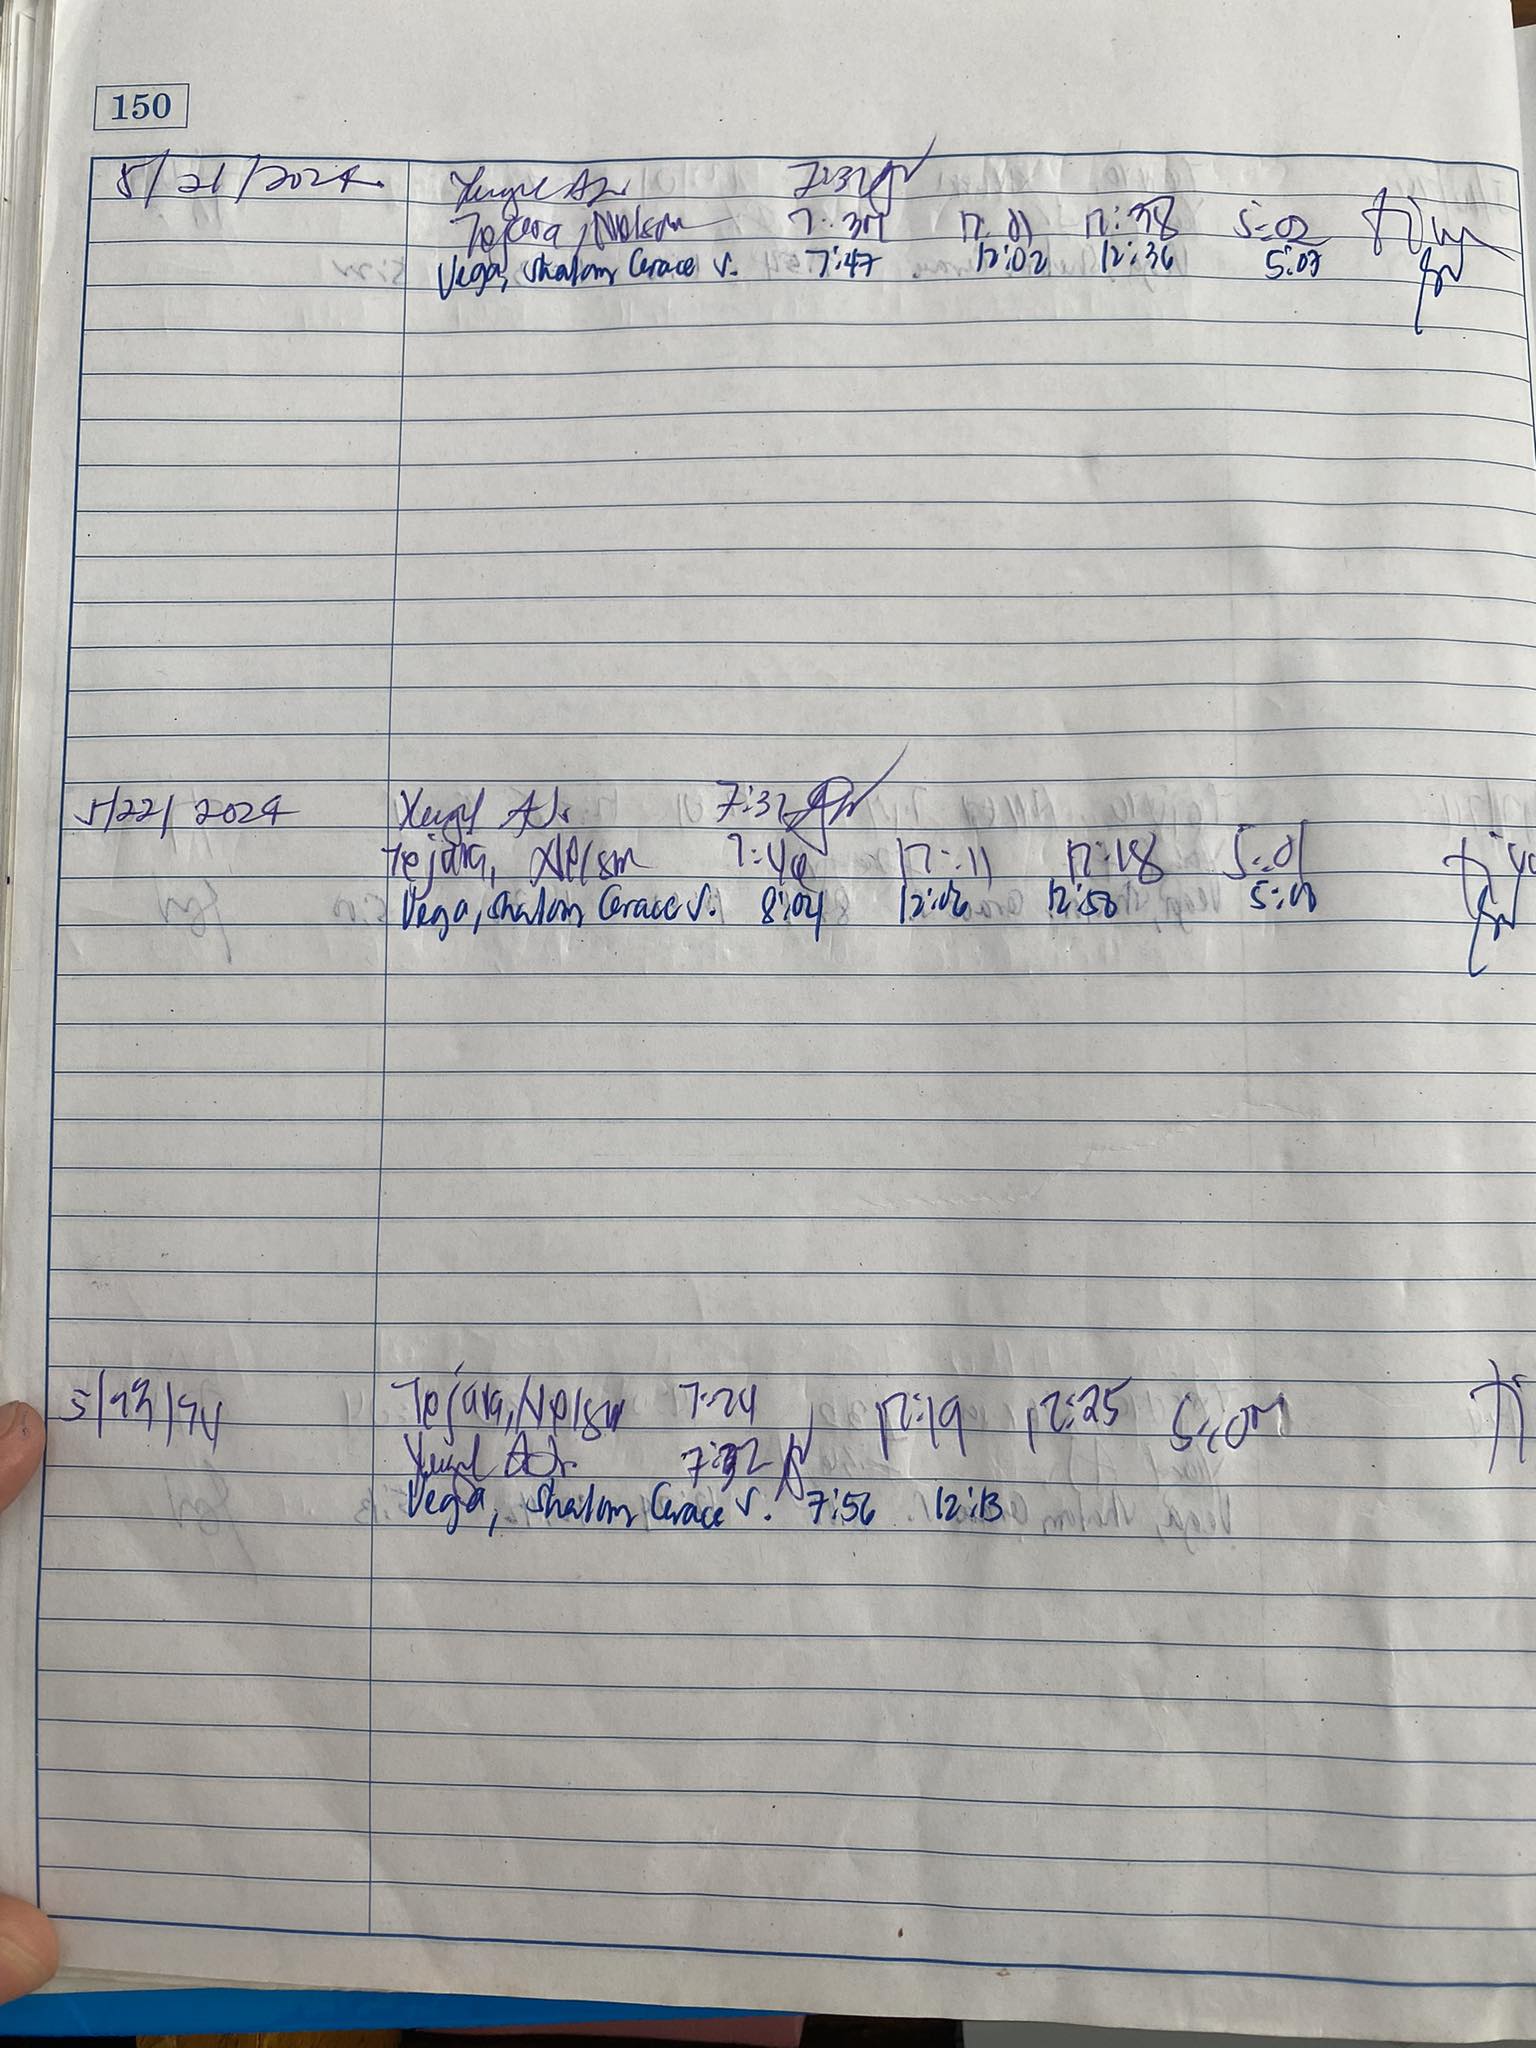 150
5/21/2024 7:32
Tejara, Nelson 12:01 12:38 5:02
Vega, Shalom Grace V. 7:47 12:02 12:36 5:07
5/22/2024 7:32
Tejara, Nelson 7:44 12:11 12:18 5:01
Vega, Shalom Grace V. 8:04 12:06 12:50
5/23/24 Tejara, Nelson 7:24 12:19 12:25
7:32
Vega, Shalom Grace V. 7:56 12:13